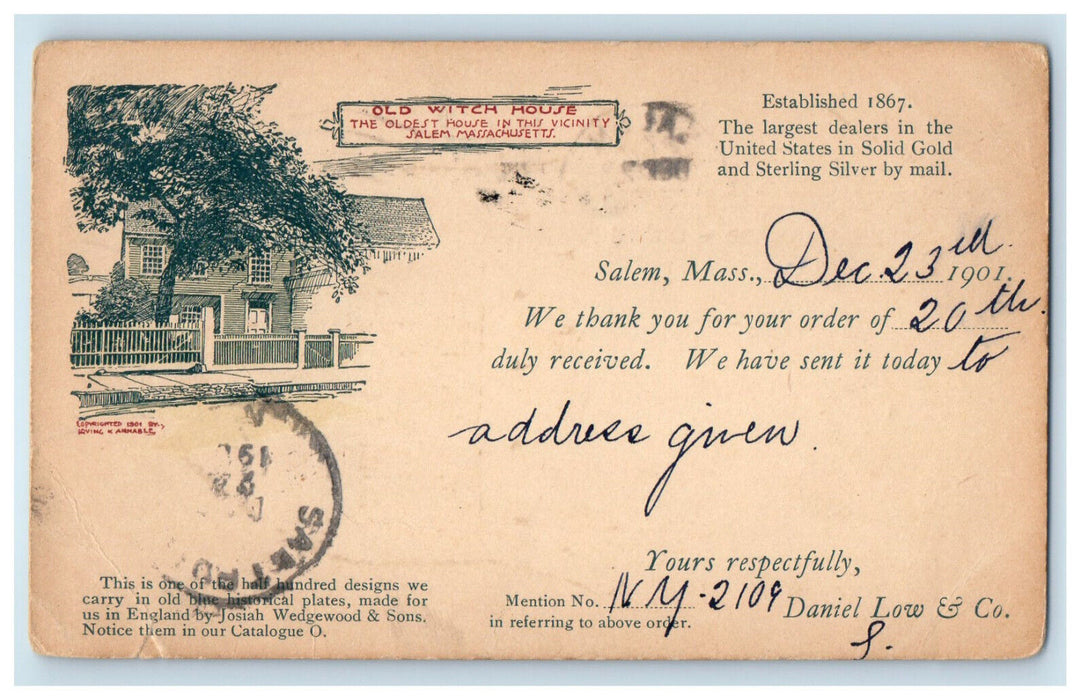 OLD WITCH HOUSE
THE OLDEST HOUSE IN THIS VICINITY
SALEM MASSACHUSETTS.
Established 1867.
The largest dealers in the
United States in Solid Gold
and Sterling Silver by mail.
Salem, Mass., Dec. 23rd. 1901.
We thank you for your order of 20th.
duly received. We have sent it today to
address given.
COPYRIGHTED 1901 BY
IRVING K ANNABLE
Yours respectfully,
Mention No. NY-2109
in referring to above order.
Daniel Low & Co.
S.
This is one of the half hundred designs we
carry in old blue historical plates, made for
us in England by Josiah Wedgewood & Sons.
Notice them in our Catalogue O.